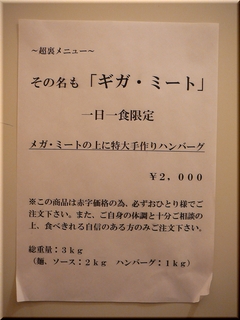 ～超裏メニュー～
その名も「ギガ・ミート」
一日一食限定
メガ・ミートの上に特大手作りハンバーグ
￥２，０００
※この商品は赤字価格の為、必ずおひとり様でご
注文下さい。また、ご自身の体調と十分ご相談の
上、食べきれる自信のある方のみご注文下さい。
総重量：３ｋｇ
（麺、ソース：２ｋｇ　ハンバーグ：１ｋｇ）